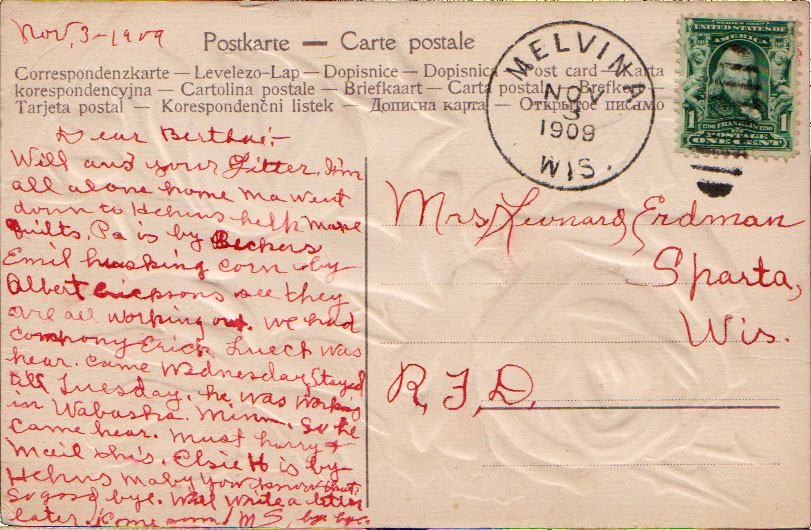 Nov, 3-1909
Postkarte — Carte postale
Correspondenzkarte — Levelezo-Lap — Dopisnice — Dopisnica — Post card — Karta
korespondencyjna — Cartolina postale — Briefkaart — Carta postal — Brefkort
Tarjeta postal — Korespondenční listek — Дописна карта — Открытое письмо
MELVINA
NOV
3
1909
WIS.
UNITED STATES OF
AMERICA
1706 FRANKLIN 1790
POSTAGE
1 ONE CENT 1
Dear Bertha:-
Will ans your Letter. I'm
all alone home Ma went
down to Hehns help Make
quilts. Pa is by Beckers
Emil husking corn by
Albert Ericksons see they
are all working out. We had
compony Erick Luech was
hear. came Wednesday Stayed
till Tuesday. he was working
in Wabasha. Minn. So he
came hear. Must hurry &
Mail this. Elsie H is by
Hehns maby you know that,
So good bye. Will write a letter
later. Come soon M S, by bye.
Mrs Leonard Erdman
Sparta,
Wis.
R, F, D,